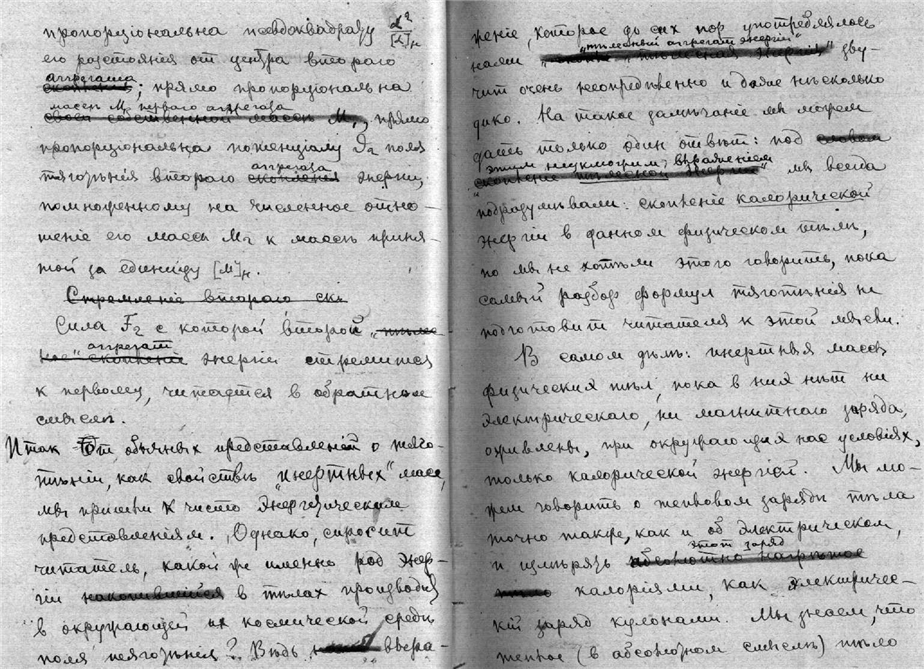 пропорціональна псевдоквадрату
его разстоянія от центра второго
агрегата
скопленія; прямо пропорціональна
массѣ M₁ перваго агрегата
своей собственной массѣ M₁, прямо
пропорціональна потенціалу поля
тяготѣнія второго агрегата скопленія энергіи,
помноженному на численное отно-
шеніе его массы M₂ к массѣ приня-
той за единицу [M]ₙ.
Стремленіе второго ск
Сила F₂ с которой второй
агрегат
ное" скопленіе энергіи стремится
к первому, читается в обратном
смыслѣ.
Итак От обычных представленій о тяго-
тѣніи, как свойствѣ "инертных" масс,
мы пришли к чисто энергетическим
представленіям. Однако, спросит
читатель, какой же именно род энер-
гіи накопившейся в тѣлах производит
в окружающей их космической средѣ
поля тяготѣнія? Вѣдь выра-
женіе, которое до сих пор употреблялось
"тѣлесный агрегат энергіи"
нами зву-
чит очень неопредѣленно и даже нѣсколько
дико. На такое замѣчаніе мы можем
дать только один отвѣт: под словом
этим выраженіем
"скопленіе тѣлесной энергіи" мы всегда
подразумѣвали: скопленіе калорической
энергіи в данном физическом тѣлѣ,
но мы не хотѣли этого говорить, пока
самый разбор формул тяготѣнія не
подготовит читателя к этой мысли.
В самом дѣлѣ: инертныя массы
физических тѣл, пока в них нѣт ни
электрическаго, ни магнитнаго заряда,
оживлены, при окружающих нас условіях,
только калорической энергіей. Мы мо-
жем говорить о тепловом зарядѣ тѣла
точно также, как и об электрическом,
этот заряд
и измѣрять абсолютно нагрѣтое
тѣло калоріями, как электричес-
кій заряд кулонами. Мы знаем, что
теплое (в абсолютном смыслѣ) тѣло